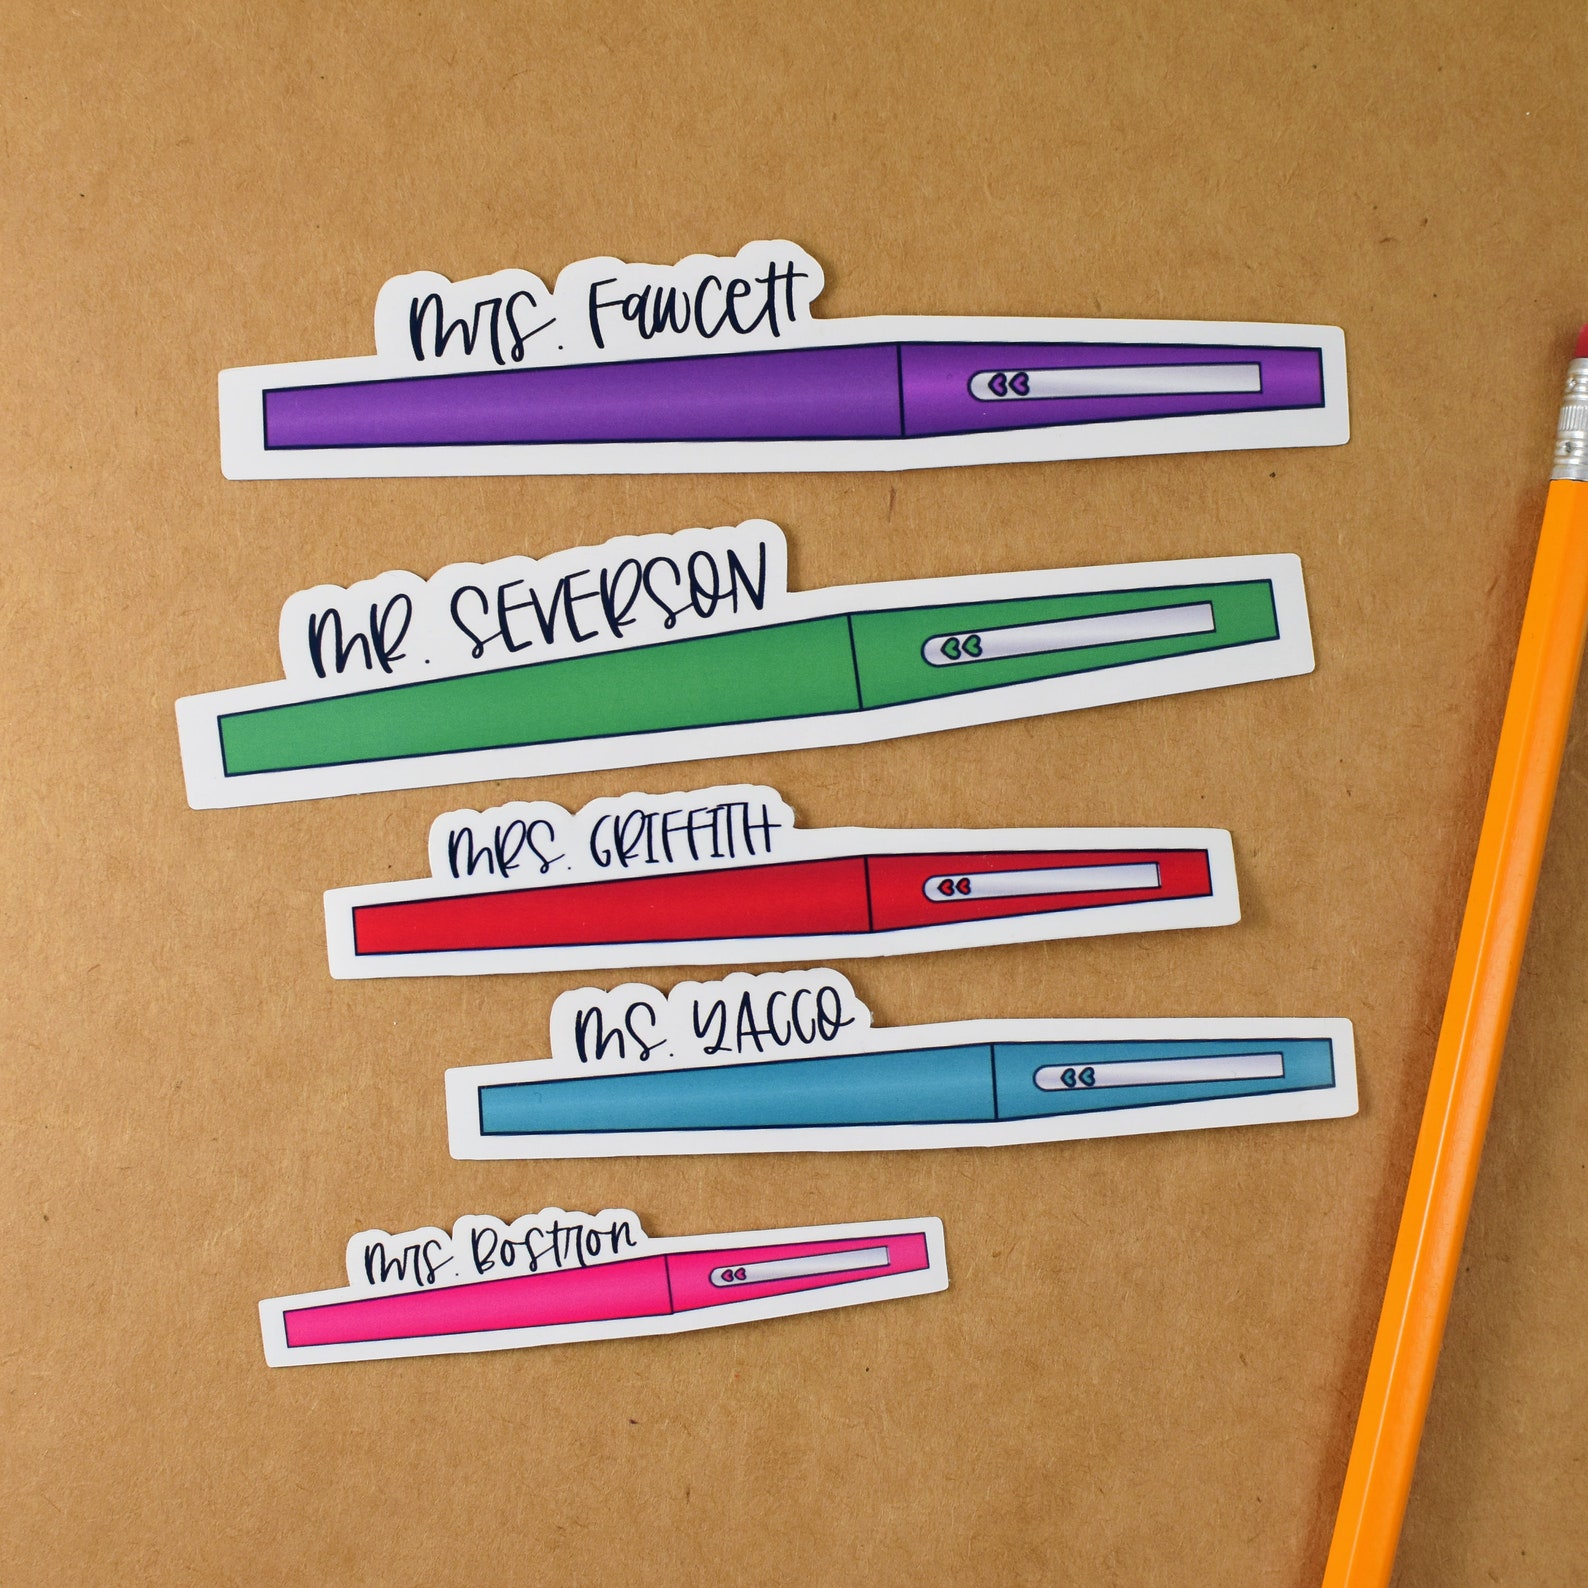 Mrs. Fawcett
MR. SEVERSON
MRS. GRIFFITH
MS. YACCO
Mrs. Bostron